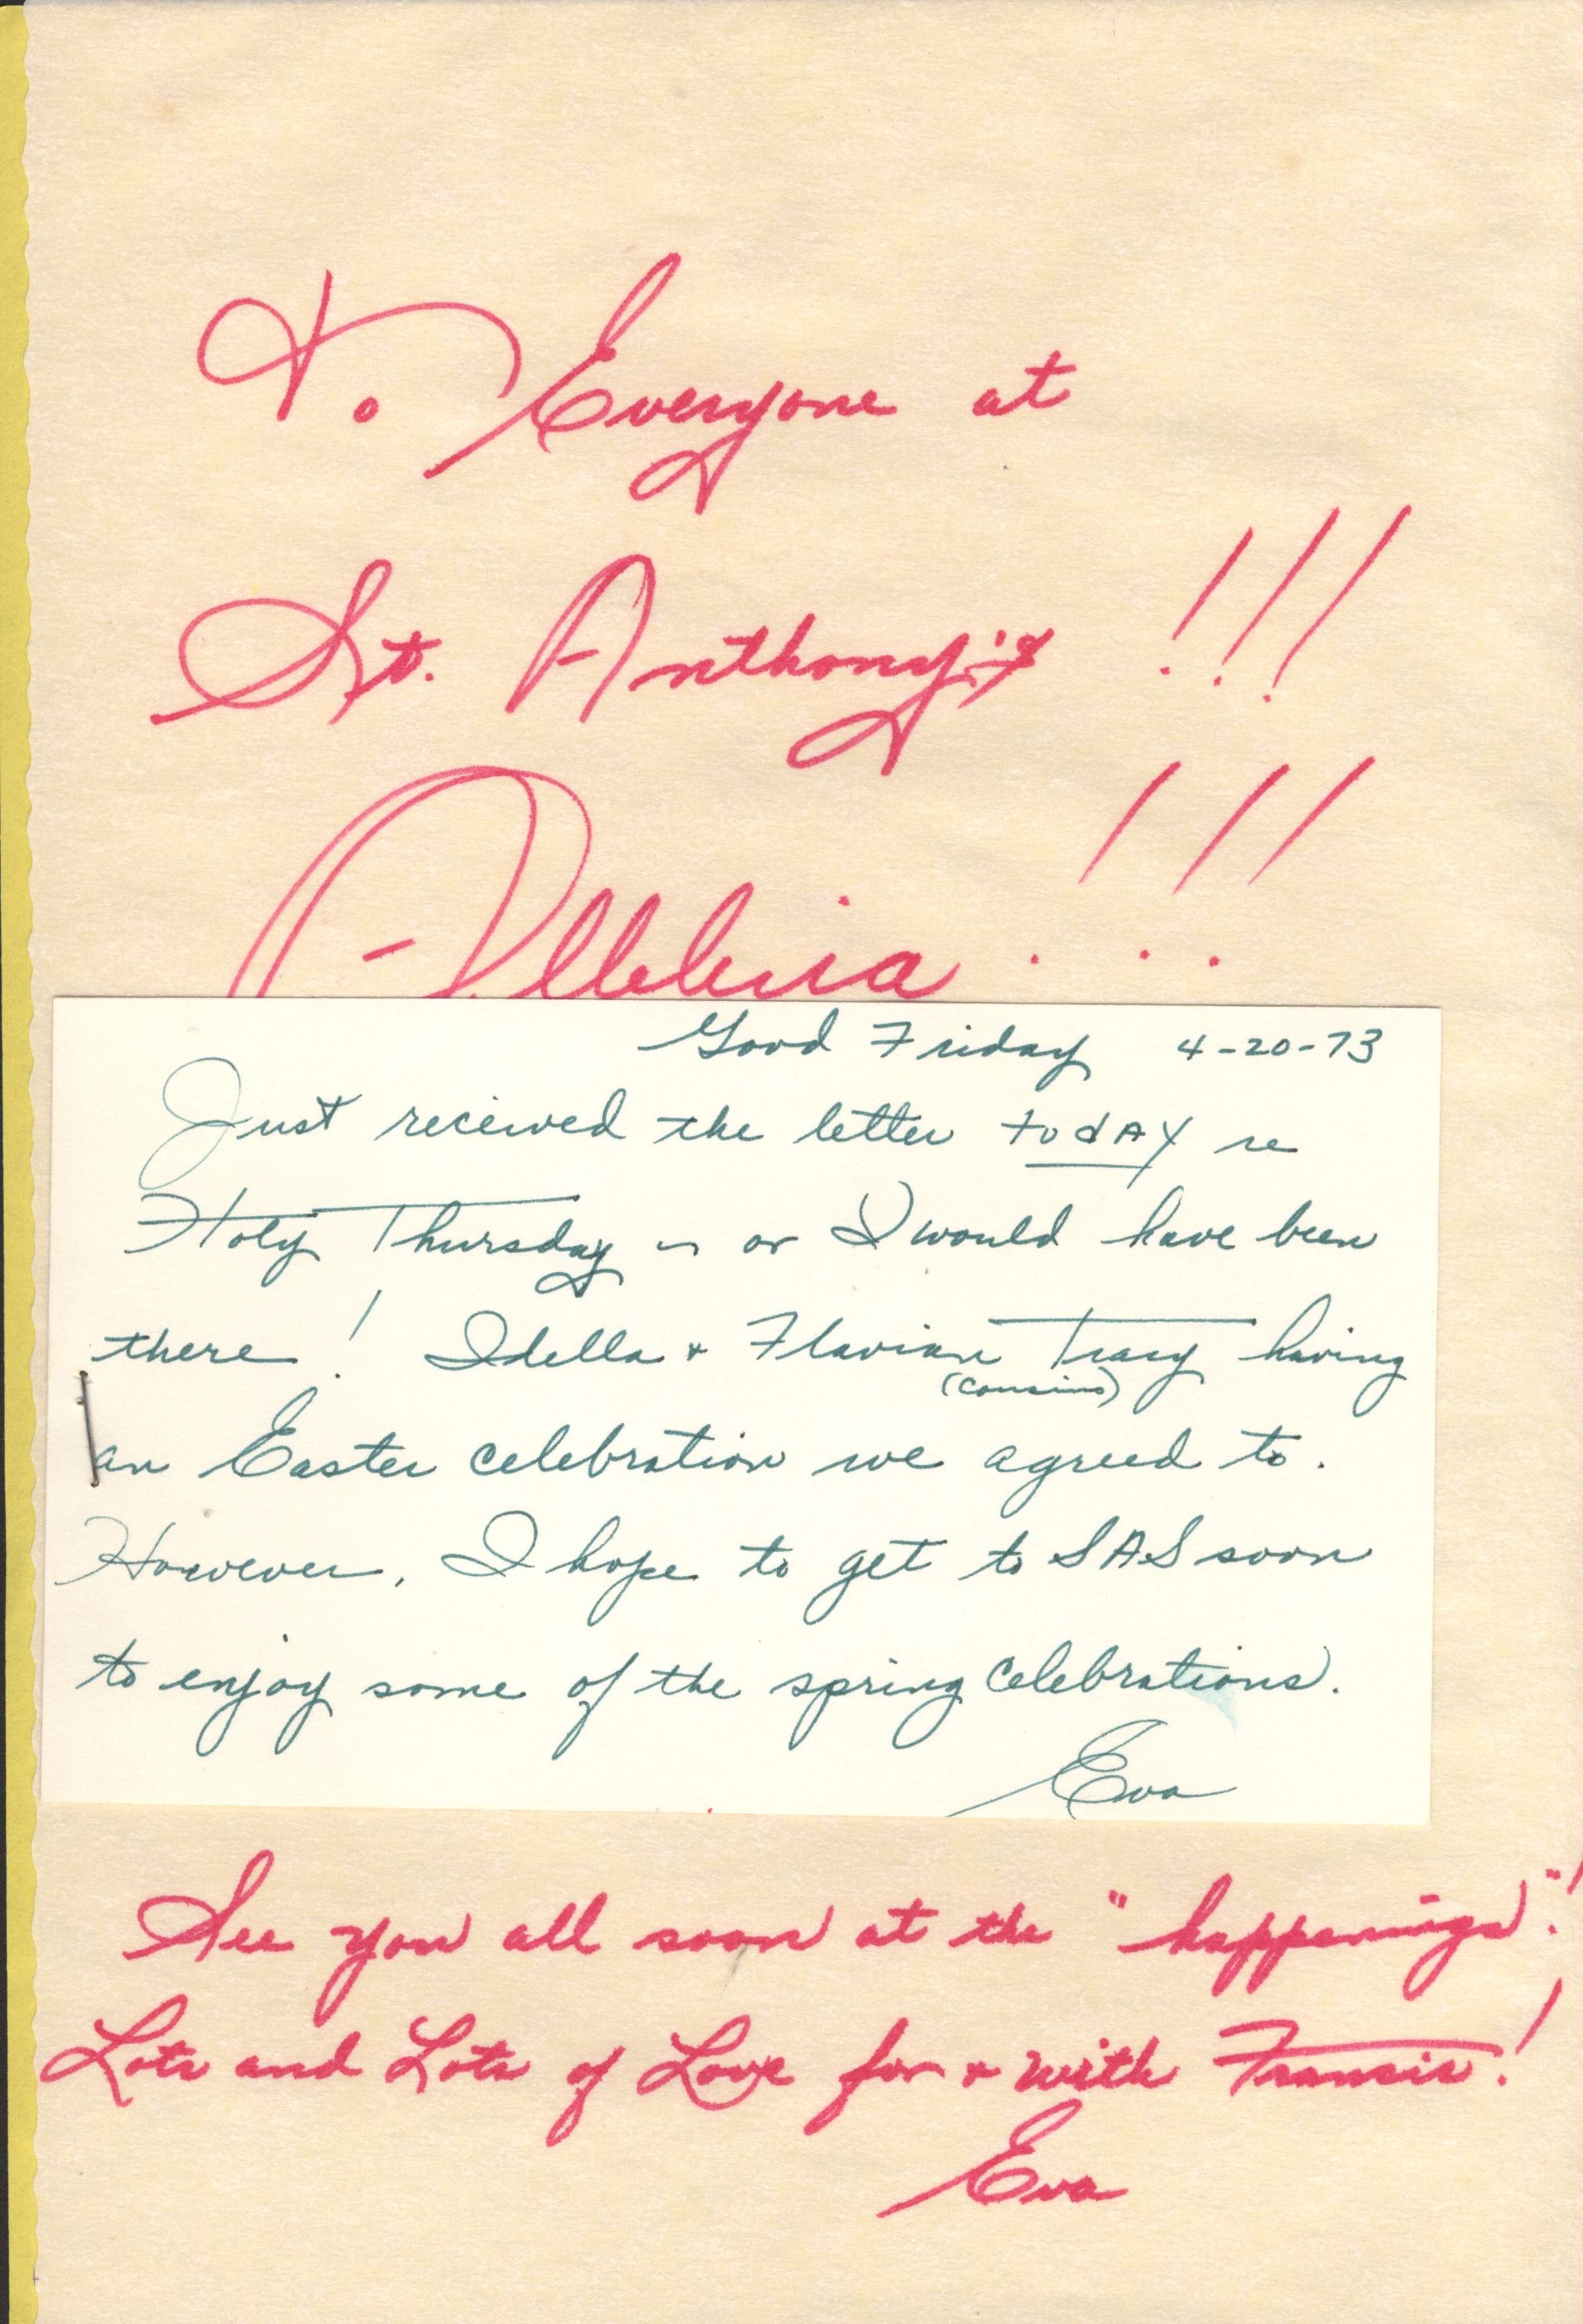 To Everyone at
St. Anthony's !!!
Alleluia !!!
Good Friday 4-20-73
Just received the letter today re
Holy Thursday ~ or I would have been
there! Idella & Flavian Tracy having
(cousins)
an Easter celebration we agreed to.
However, I hope to get to SAS soon
to enjoy some of the spring celebrations.
Eva
See you all soon at the "happenings"!
Lots and Lots of Love for & with Francis!
Eva